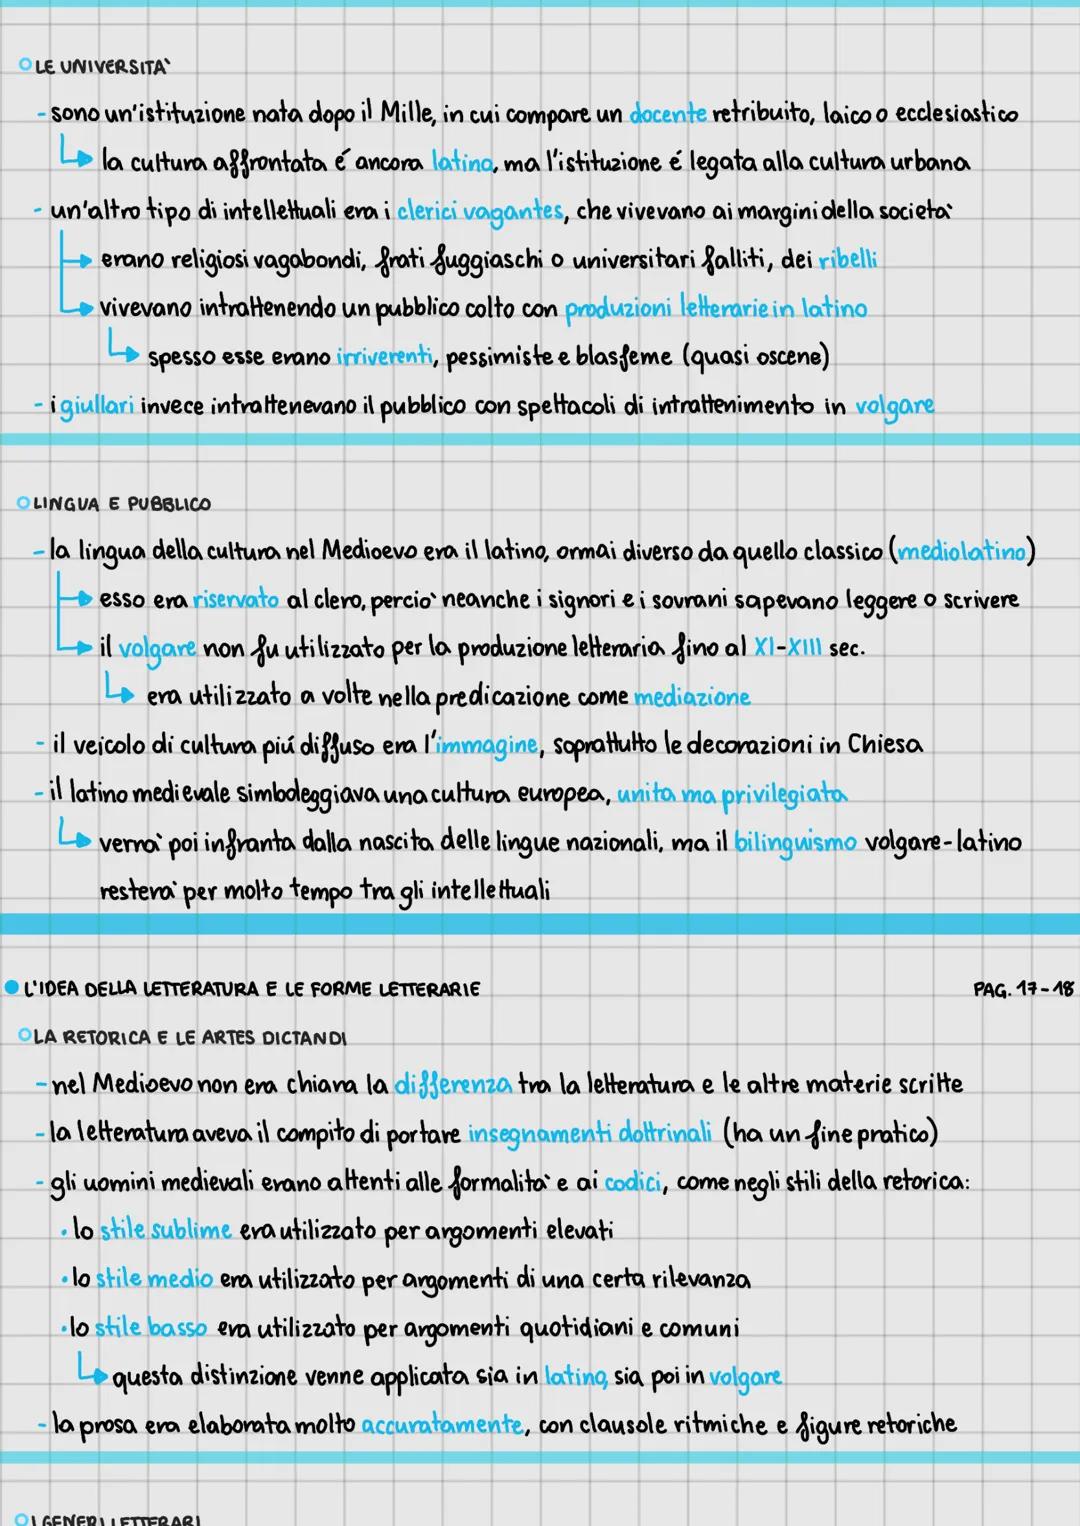 LE UNIVERSITA`
- sono un'istituzione nata dopo il Mille, in cui compare un docente retribuito, laico o ecclesiastico
la cultura affrontata é ancora latina, ma l'istituzione é legata alla cultura urbana
- un'altro tipo di intellettuali era i clerici vagantes, che vivevano ai margini della societa`
erano religiosi vagabondi, frati fuggiaschi o universitari falliti, dei ribelli
vivevano intrattenendo un pubblico colto con produzioni letterarie in latino
spesso esse erano irriverenti, pessimiste e blasfeme (quasi oscene)
- i giullari invece intrattenevano il pubblico con spettacoli di intrattenimento in volgare
LINGUA E PUBBLICO
- la lingua della cultura nel Medioevo era il latino, ormai diverso da quello classico (mediolatino)
esso era riservato al clero, percio` neanche i signori e i sovrani sapevano leggere o scrivere
il volgare non fu utilizzato per la produzione letteraria fino al XI-XIII sec.
era utilizzato a volte nella predicazione come mediazione
- il veicolo di cultura piú diffuso era l'immagine, soprattutto le decorazioni in Chiesa
- il latino medievale simboleggiava una cultura europea, unita ma privilegiata
verra` poi infranta dalla nascita delle lingue nazionali, ma il bilinguismo volgare-latino
restera` per molto tempo tra gli intellettuali
L'IDEA DELLA LETTERATURA E LE FORME LETTERARIE PAG. 17-18
LA RETORICA E LE ARTES DICTANDI
- nel Medioevo non era chiara la differenza tra la letteratura e le altre materie scritte
- la letteratura aveva il compito di portare insegnamenti dottrinali (ha un fine pratico)
- gli uomini medievali erano attenti alle formalita` e ai codici, come negli stili della retorica:
• lo stile sublime era utilizzato per argomenti elevati
• lo stile medio era utilizzato per argomenti di una certa rilevanza
• lo stile basso era utilizzato per argomenti quotidiani e comuni
questa distinzione venne applicata sia in latino, sia poi in volgare
- la prosa era elaborata molto accuratamente, con clausole ritmiche e figure retoriche
I GENERI LETTERARI